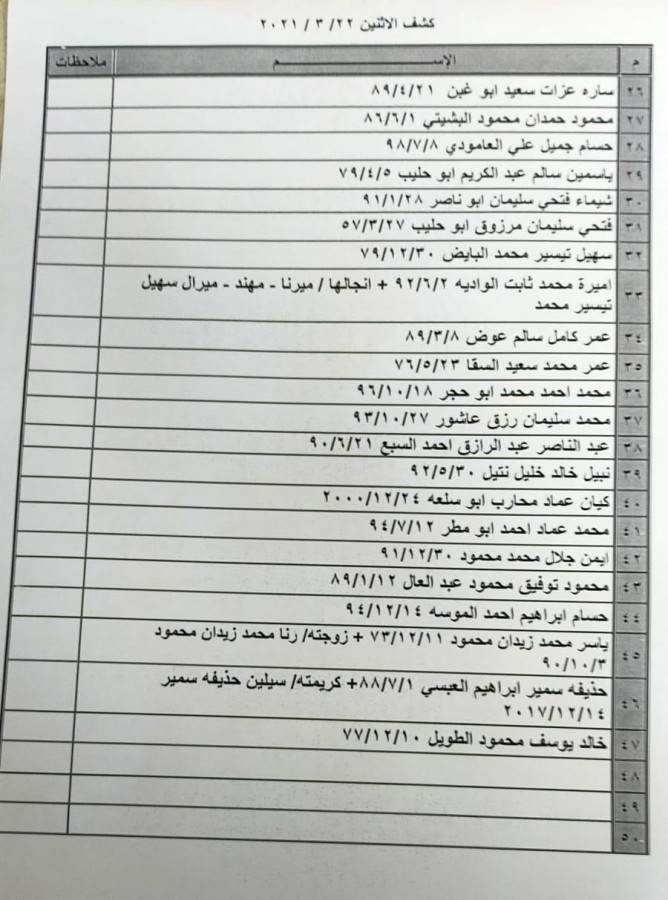 كشف الاثنين ٢٢/ ٣ / ٢٠٢١
م الإســـم ملاحظات
٢٦ ساره عزات سعيد ابو غبن ٨٩/٤/٢١
٢٧ محمود حمدان محمود البشيتي ٨٦/٦/١
٢٨ حسام جميل علي العامودي ٩٨/٧/٨
٢٩ ياسمين سالم عبد الكريم ابو حليب ٧٩/٤/٥
٣٠ شيماء فتحي سليمان ابو ناصر ٩١/١/٢٨
٣١ فتحي سليمان مرزوق ابو حليب ٥٧/٣/٢٧
٣٢ سهيل تيسير محمد البايض ٧٩/١٢/٣٠
٣٣ اميرة محمد ثابت الواديه ٩٢/٦/٢ + انجالها / ميرنا - مهند - ميرال سهيل
تيسير محمد
٣٤ عمر كامل سالم عوض ٨٩/٣/٨
٣٥ عمر محمد سعيد السقا ٧٦/٥/٢٣
٣٦ محمد احمد محمد ابو حجر ٩٦/١٠/١٨
٣٧ محمد سليمان رزق عاشور ٩٣/١٠/٢٧
٣٨ عبد الناصر عبد الرازق احمد السبع ٩٠/٦/٢١
٣٩ نبيل خالد خليل نتيل ٩٢/٥/٣٠
٤٠ كيان عماد محارب ابو سلعه ٢٠٠٠/١٢/٢٤
٤١ محمد عماد احمد ابو مطر ٩٤/٧/١٢
٤٢ ايمن جلال محمد محمود ٩١/١٢/٣٠
٤٣ محمود توفيق محمود عبد العال ٨٩/١/١٢
٤٤ حسام ابراهيم احمد الموسه ٩٤/١٢/١٤
٤٥ ياسر محمد زيدان محمود ٧٣/١٢/١١ + زوجته/ رنا محمد زيدان محمود
٩٠/١٠/٣
٤٦ حذيفه سمير ابراهيم العبسي ٨٨/٧/١+ كريمته/ سيلين حذيفه سمير
٢٠١٧/١٢/١٤
٤٧ خالد يوسف محمود الطويل ٧٧/١٢/١٠
٤٨
٤٩
٥٠